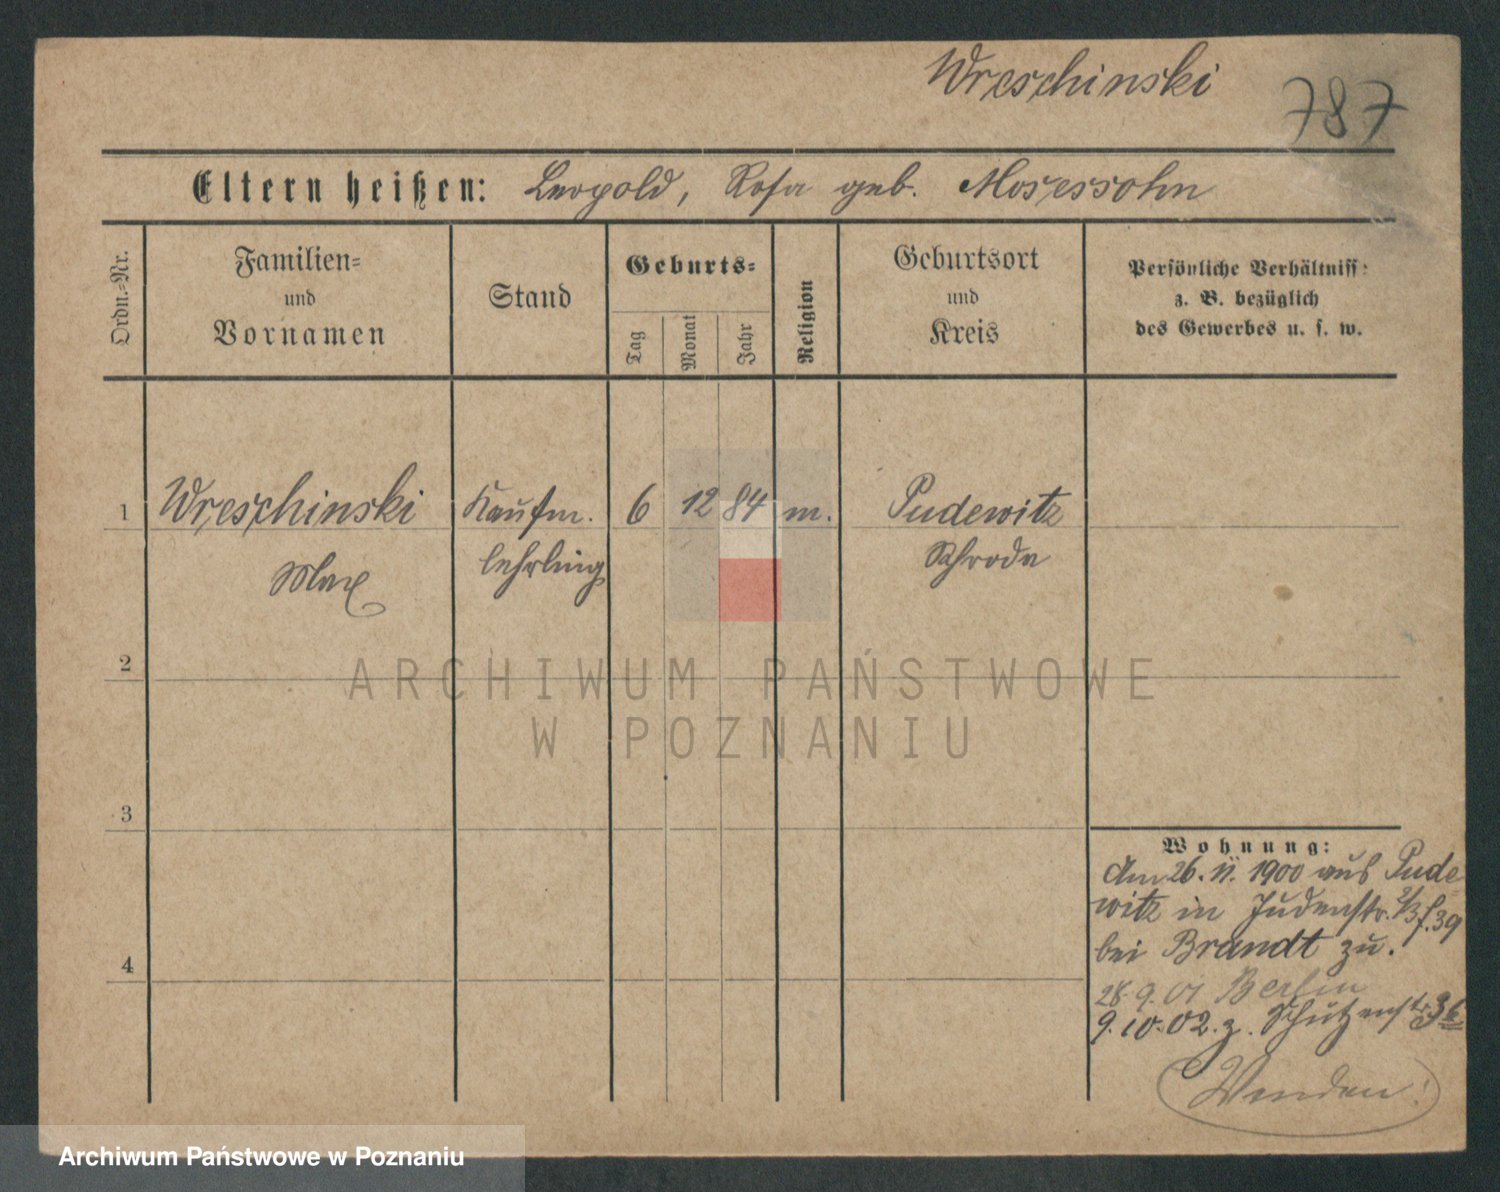 Wreschinski
787
Eltern heißen: Leopold, Rosa geb. Mosessohn
Ordn.-Nr.
Familien-
und
Vornamen
Stand
Geburts-
Tag
Monat
Jahr
Religion
Geburtsort
und
Kreis
Persönliche Verhältniss:
z. B. bezüglich
des Gewerbes u. s. w.
1 Wreschinski Kaufm. 6 12 84 m. Pudewitz
Max lehrling Schroda
2
ARCHIWUM PAŃSTWOWE
W POZNANIU
3
Wohnung:
Am 26. 11. 1900 aus Pude-
witz in Judenstr. 39
bei Brandt zu.
4
28. 9. 01 Berlin
9. 10. 02. z. Schützenstr. 36
Wenden!
Archiwum Państwowe w Poznaniu